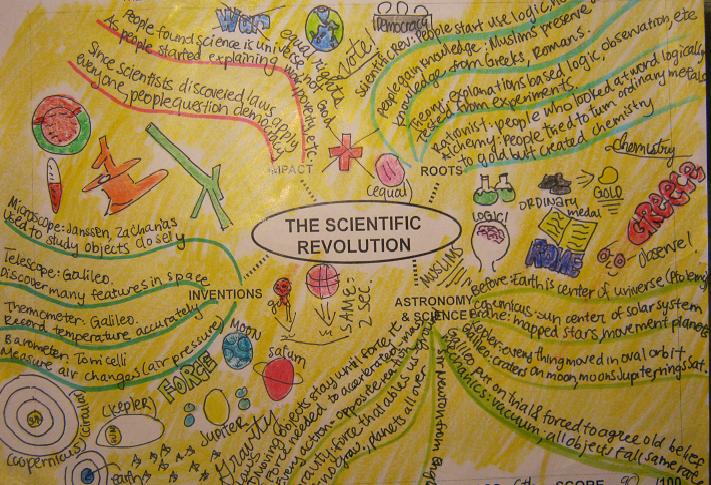 War
equal rights
vote!
Democracy
People found science is universe
As people started explaining war not good, poverty, etc.
Since scientists discovered laws apply
everyone, people question democracy
IMPACT
(equal)
Scientific Rev: People start use logic,
people gain knowledge: Muslims preserve
knowledge from Greeks, Romans.
Theory: explanations based logic, observation, etc
tested from experiments.
people who looked at word logically
Alchemy: People tried to turn ordinary metals
to gold but created chemistry
ROOTS
chemistry
LOGIC!
ORDINARY
medal
GOLD
GREECE
ROME
Observe!
MUSLIMS
THE SCIENTIFIC
REVOLUTION
Microscope: Janssen, Zacharias
Used to study objects closely
Telescope: Galileo.
Discover many features in space
Thermometer: Galileo.
Record temperature accurately
Barometer: Torricelli
Measure air changes (air pressure)
INVENTIONS
SAME:
2 sec.
FORCE
MOON
saturn
JUPITER
(kepler)
sun
(circular)
earth
Gravity
ASTRONOMY
& SCIENCE
Before: Earth is center of universe (Ptolemy)
sun center of solar system
Brahe: mapped stars, movement planets
Kepler: everything moved in oval orbit
Galileo: craters on moon, moons Jupiter, rings Sat.
Galileo put on trial & forced to agree old belief
mechanics: vacuum, all objects fall same rate
moving objects stay until force
Force needed to accelerate
Every action-opposite reaction
gravity: force that
planets all over
SCORE
/100